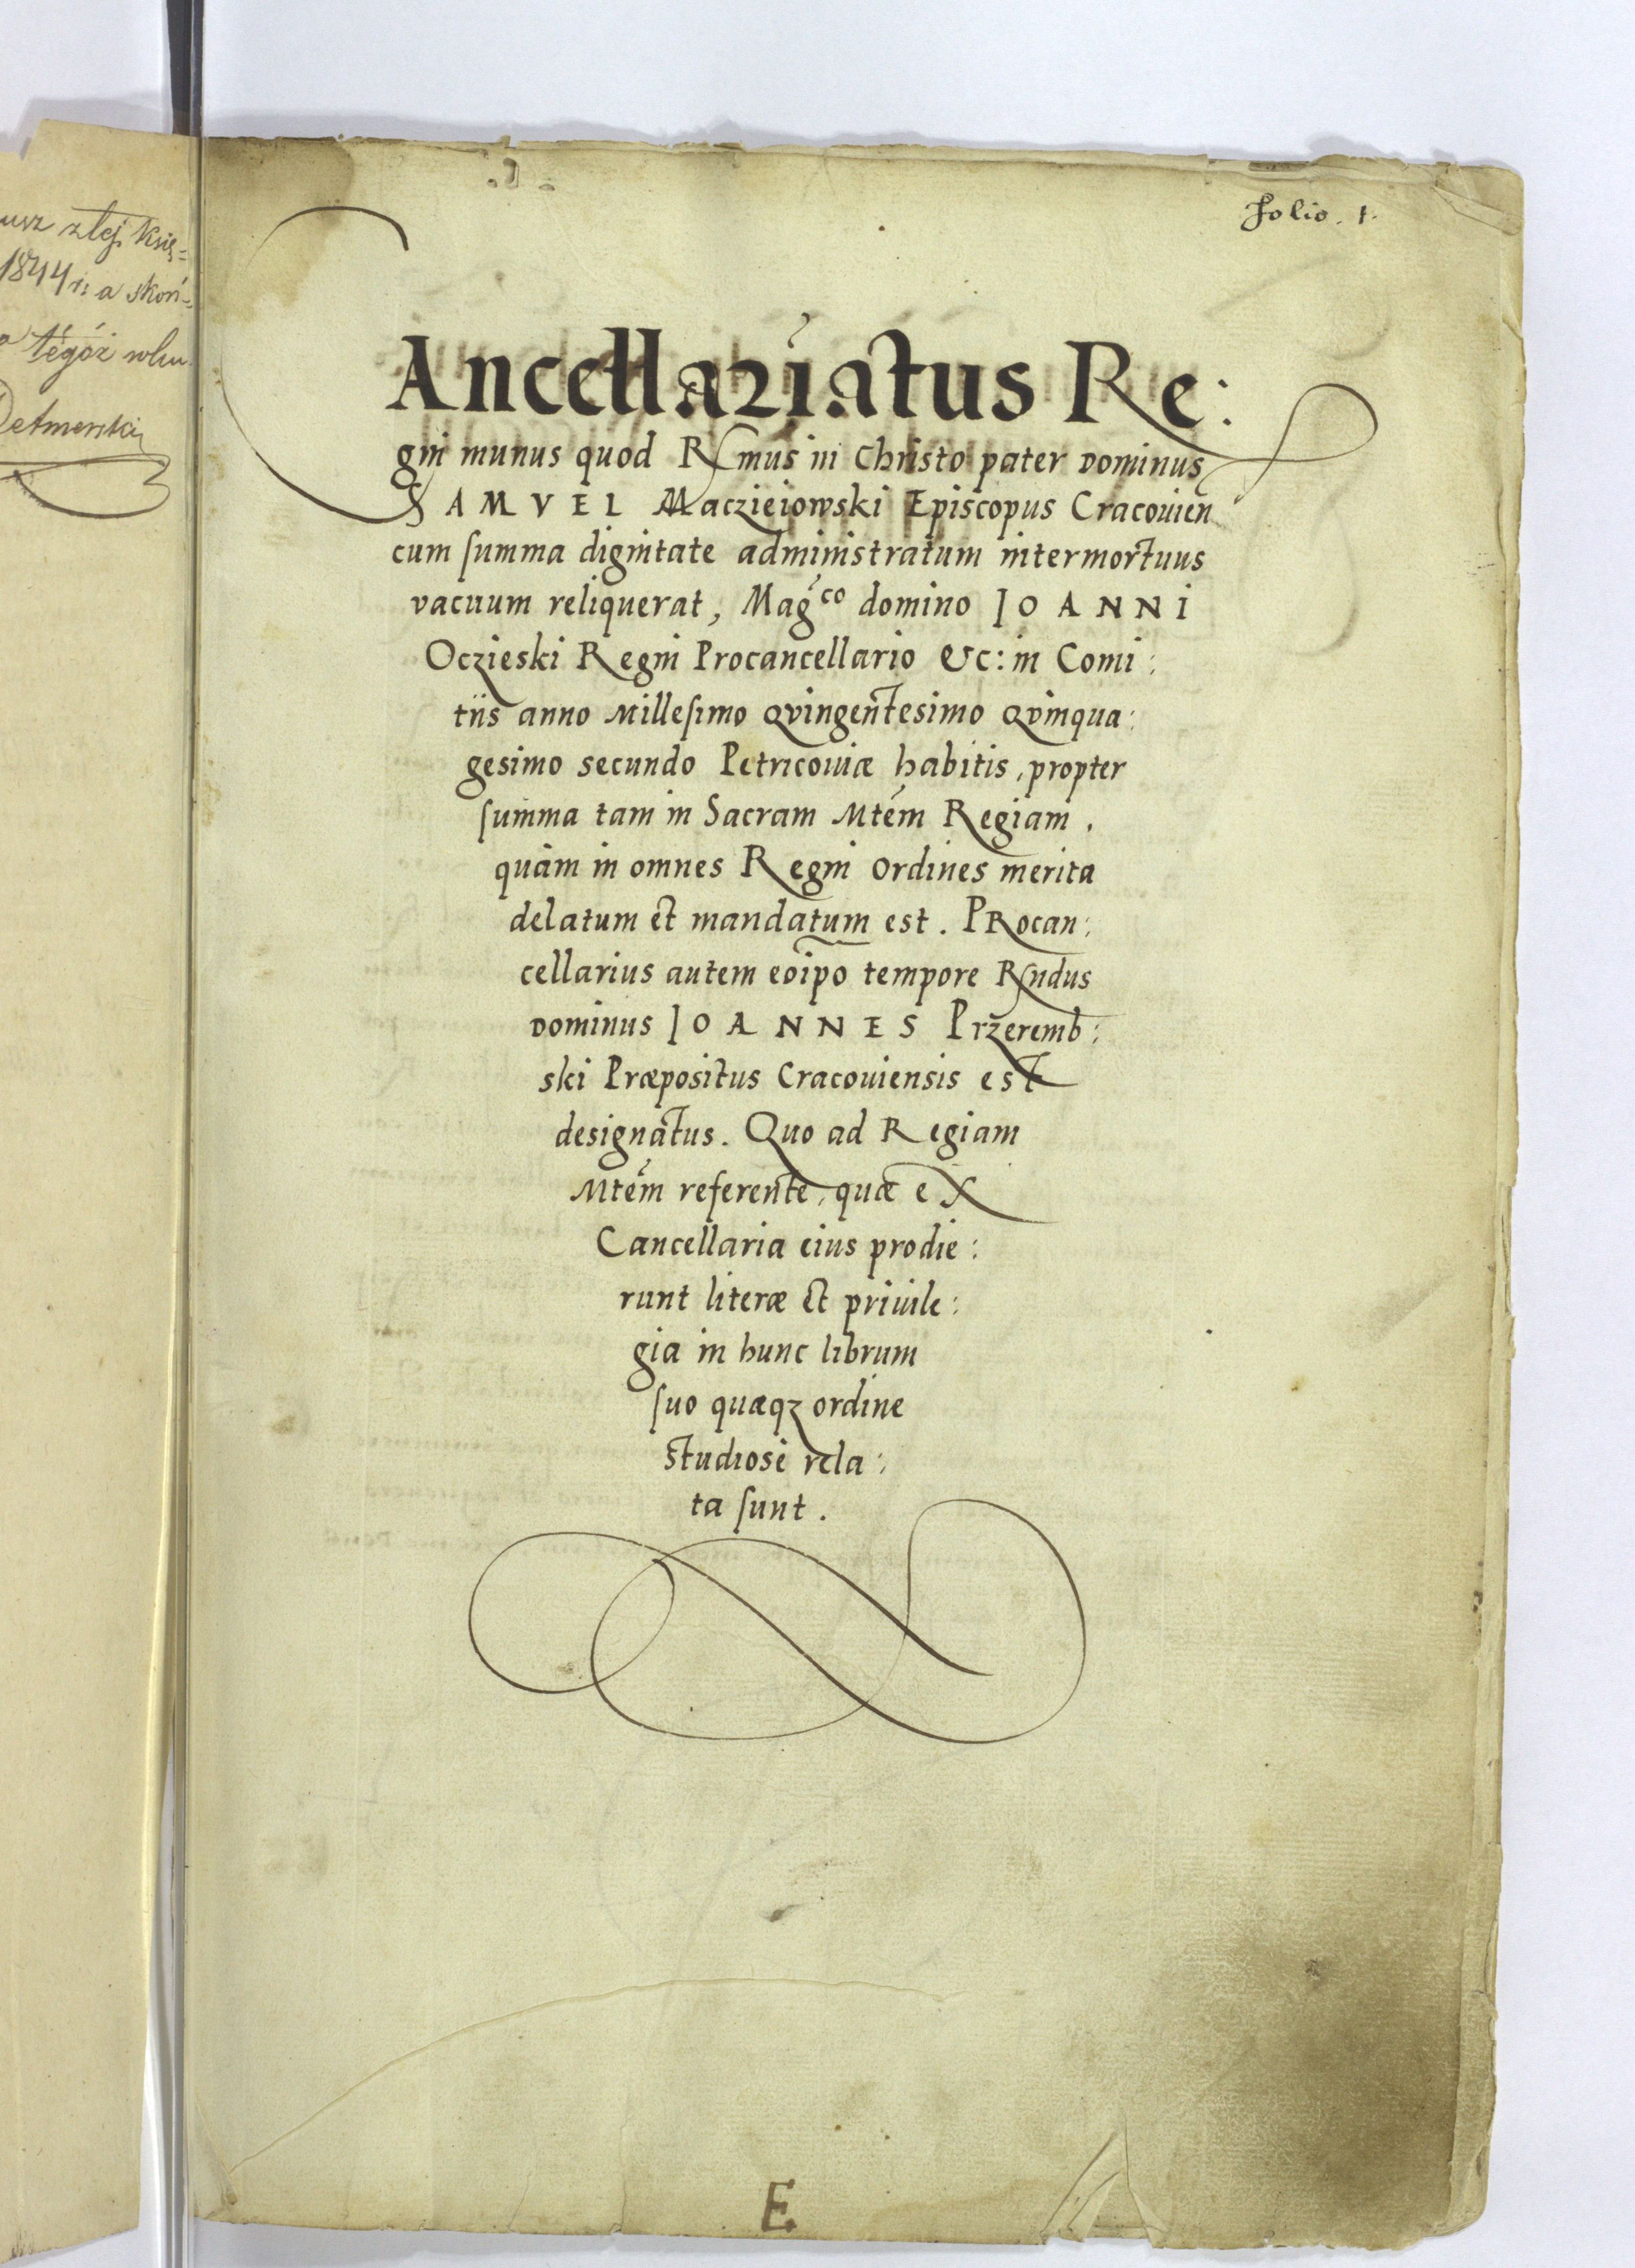 usz z tej Księ=
1844 r: a skoń-
tégóż roku
Detmerski
Folio. 1.
Ancellariatus Re:
gni munus quod Rmus in Christo pater Dominus
SAMVEL Maczieiowski Episcopus Cracouien
cum summa dignitate administratum intermortuus
vacuum reliquerat, Mag^co domino IOANNI
Oczieski Regni Procancellario &c: in Comi:
tiis anno Millesimo Qvingentesimo Qvinqua:
gesimo secundo Petricouiæ habitis, propter
summa tam in Sacram Mtem Regiam,
quàm in omnes Regni Ordines merita
delatum et mandatum est. PRocan:
cellarius autem eoipo tempore Rndus
Dominus IOANNES Przeremb:
ski Præpositus Cracouiensis est
designatus. Quo ad Regiam
Mtem referente, quæ ex
Cancellaria eius prodie:
runt literæ et priuile:
gia in hunc librum
suo quæqz ordine
studiose rela:
ta sunt.
E